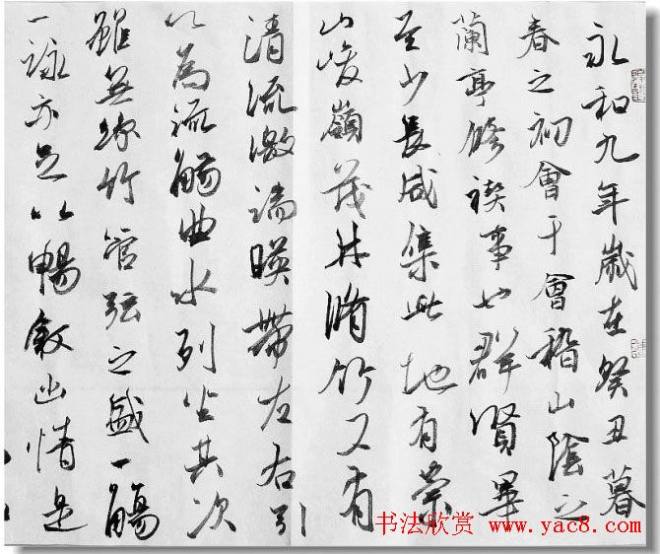 永和九年歲在癸丑暮
春之初會于會稽山陰之
蘭亭脩禊事也群賢畢
至少長咸集此地有崇
山峻嶺茂林脩竹又有
清流激湍暎帶左右引
以為流觴曲水列坐其次
雖無絲竹管弦之盛一觴
一詠亦足以暢敘幽情是
书法欣赏 www.yac8.com